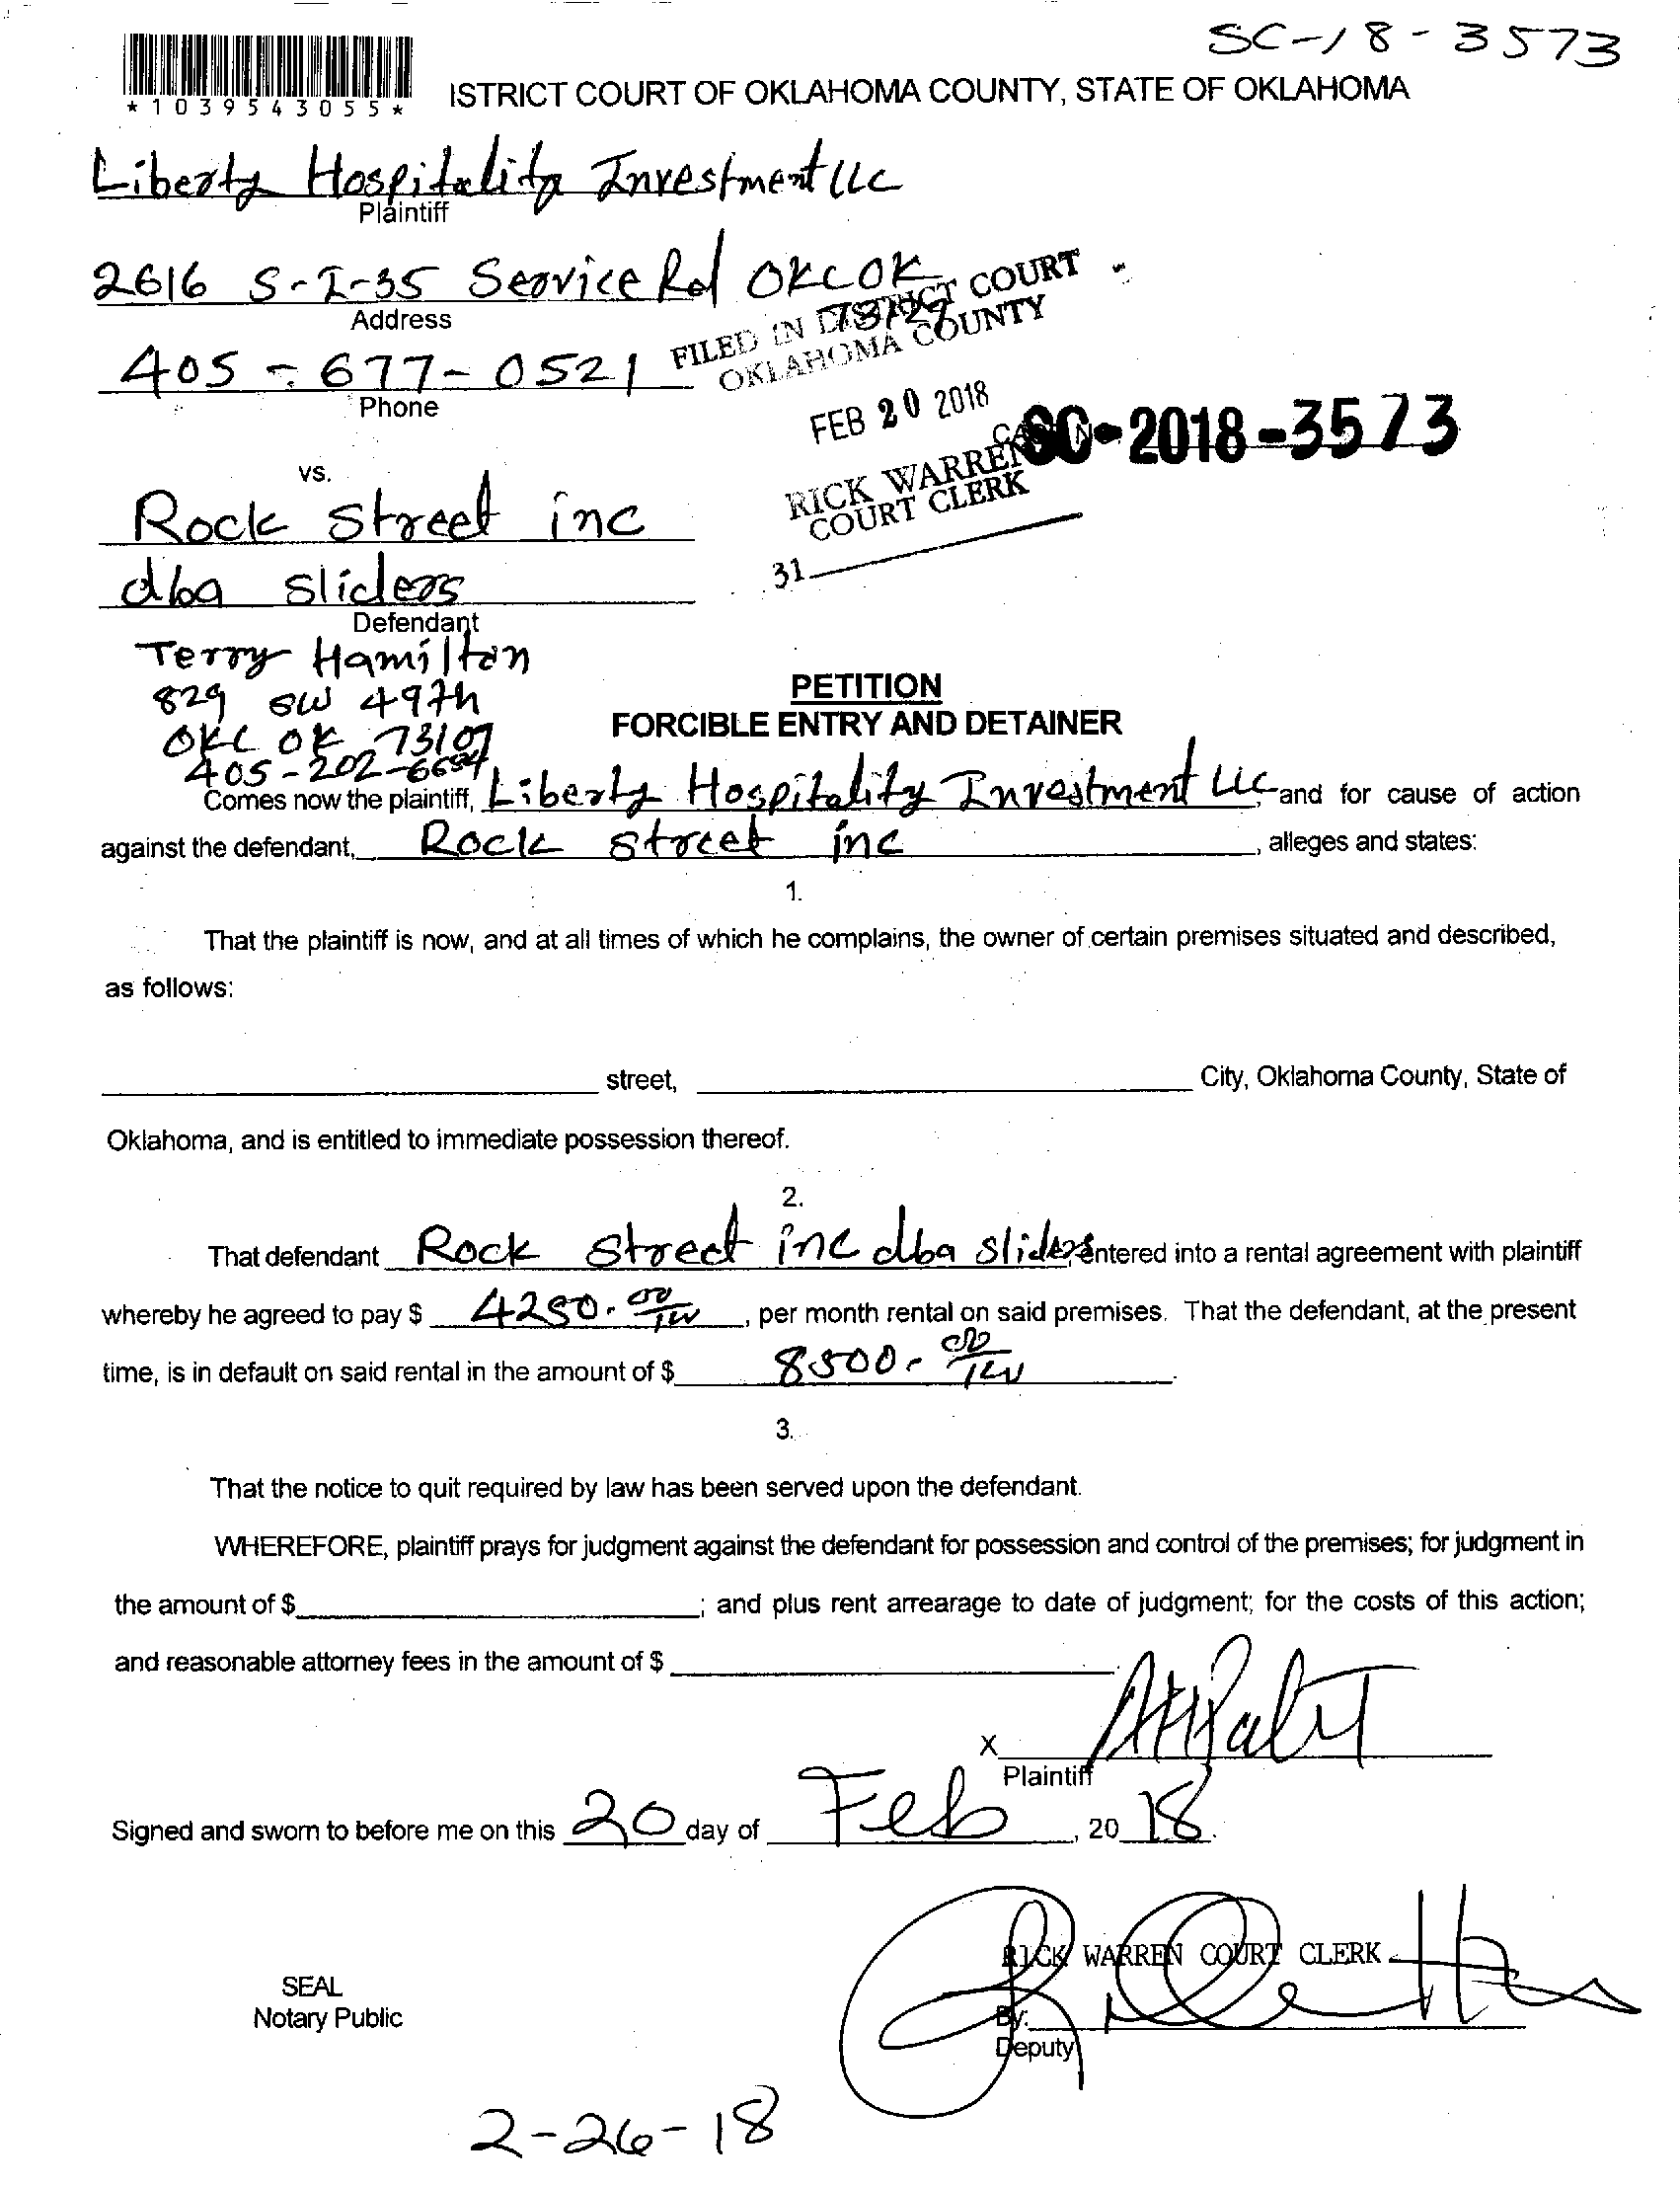 SC-18-3573
*1039543055*
ISTRICT COURT OF OKLAHOMA COUNTY, STATE OF OKLAHOMA
Liberty Hospitality Investment LLC
Plaintiff
2616 S-I-35 Service Rd OKC OK
73129
Address
FILED IN DISTRICT COURT
OKLAHOMA COUNTY
405-677-0521
Phone
FEB 20 2018
SC-2018-3573
vs.
RICK WARREN
COURT CLERK
Rock street inc
31
dba sliders
Defendant
Terry Hamilton
829 SW 49th
OKC OK 73107
405-202-
PETITION
FORCIBLE ENTRY AND DETAINER
Comes now the plaintiff, Liberty Hospitality Investment LLC, and for cause of action
against the defendant, Rock street inc, alleges and states:
1.
That the plaintiff is now, and at all times of which he complains, the owner of certain premises situated and described,
as follows:
street, City, Oklahoma County, State of
Oklahoma, and is entitled to immediate possession thereof.
2.
That defendant Rock street inc dba sliders, entered into a rental agreement with plaintiff
whereby he agreed to pay $ 4250.00, per month rental on said premises. That the defendant, at the present
time, is in default on said rental in the amount of $ 8500.00.
3.
That the notice to quit required by law has been served upon the defendant.
WHEREFORE, plaintiff prays for judgment against the defendant for possession and control of the premises; for judgment in
the amount of $; and plus rent arrearage to date of judgment; for the costs of this action;
and reasonable attorney fees in the amount of $
X
Plaintiff
Signed and sworn to before me on this 20 day of Feb, 2018.
RICK WARREN COURT CLERK
SEAL
Notary Public
By:
Deputy
2-26-18